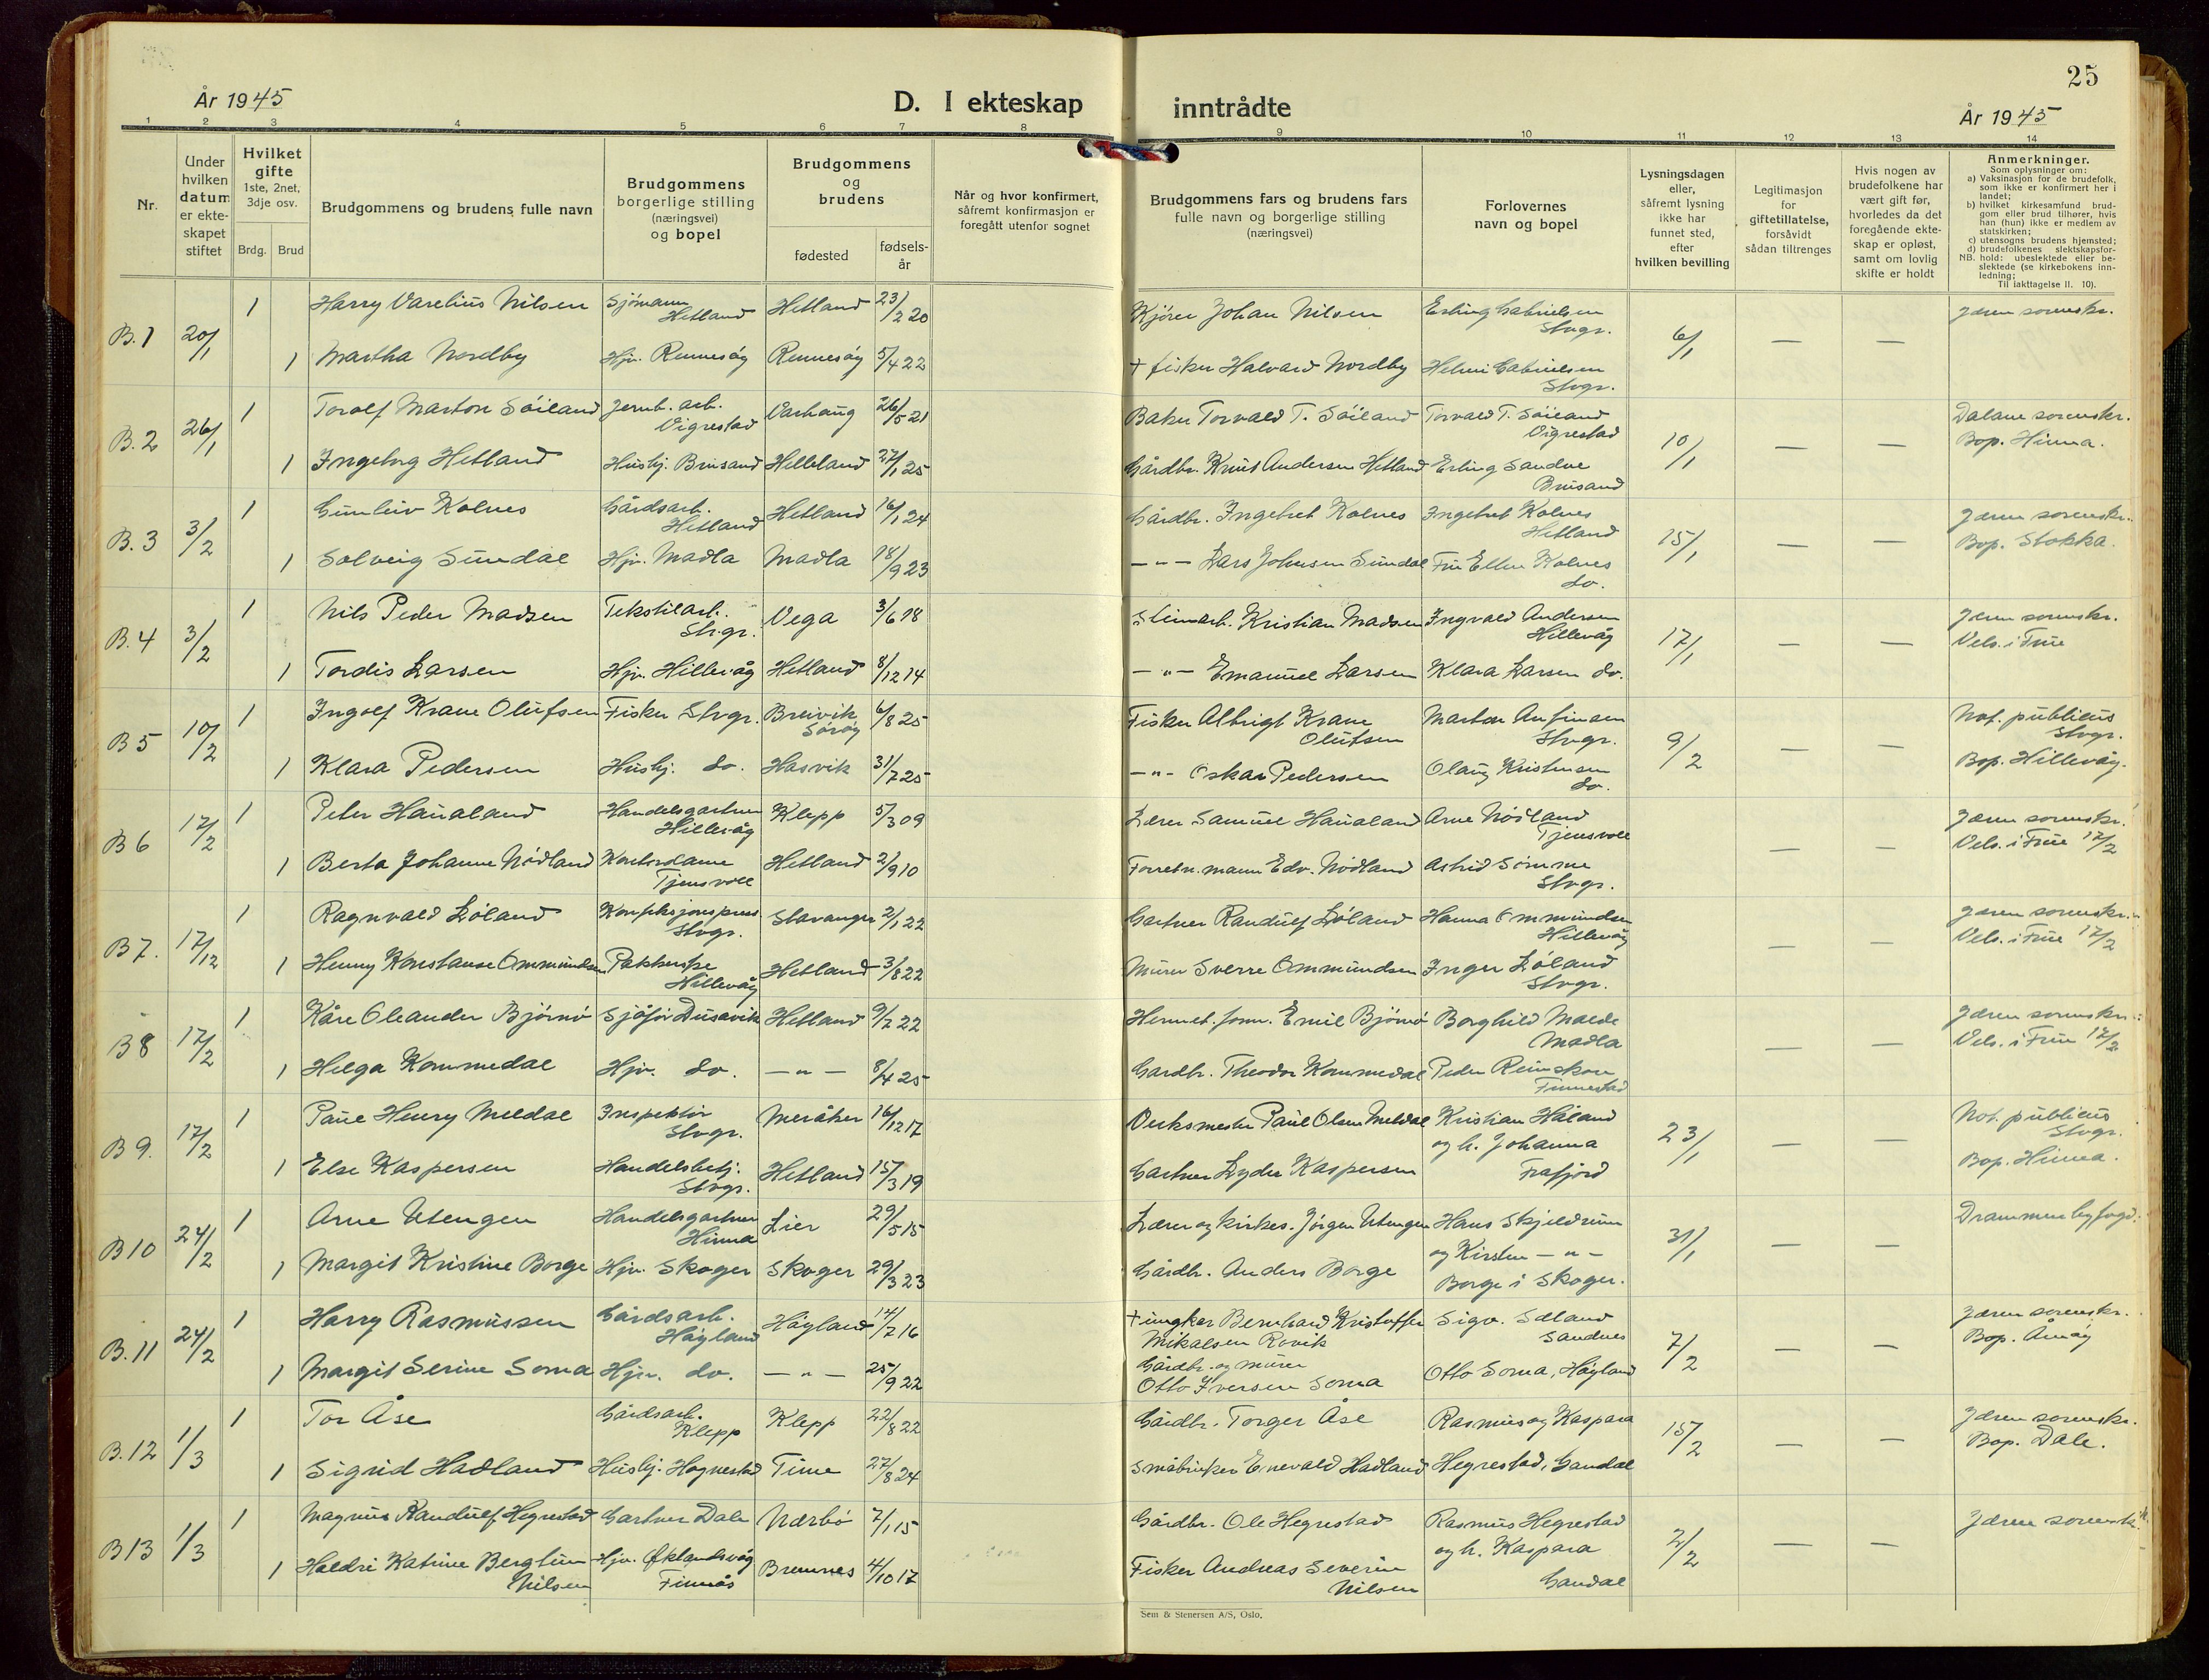 25
År 1945
D. I ekteskap inntrådte
År 1945
1 2 3 4 5 6 7 8 9 10 11 12 13 14
Nr.
Under hvilken datum er ekteskapet stiftet
Hvilket gifte 1ste, 2net, 3dje osv.
Brdg. Brud
Brudgommens og brudens fulle navn
Brudgommens borgerlige stilling (næringsvei) og bopel
Brudgommens og brudens
fødested
fødselsår
Når og hvor konfirmert, såfremt konfirmasjon er foregått utenfor sognet
Brudgommens fars og brudens fars fulle navn og borgerlige stilling (næringsvei)
Forlovernes navn og bopel
Lysningsdagen eller, såfremt lysning ikke har funnet sted, efter hvilken bevilling
Legitimasjon for giftetillatelse, forsåvidt sådan tiltrenges
Hvis nogen av brudefolkene har vært gift før, hvorledes da det foregående ekteskap er opløst, samt om lovlig skifte er holdt
Anmerkninger.
Som oplysninger om:
a) Vaksinasjon for de brudefolk, som ikke er konfirmert her i landet;
b) hvilket kirkesamfund brudgom eller brud tilhører, hvis han (hun) ikke er medlem av statskirken;
c) utensogns brudens hjemsted;
d) brudefolkenes slektskapsforhold: ubeslektede eller beslektede (se kirkebokens innledning;
NB. Til iakttagelse II. 10).
B.1 20/1 1 Harry Varelius Nilsen Sjømann Hetland Hetland 23/2 20 Kjører Johan Nilsen Erling Gabrielsen Stvgr. 6/1 — — Jæren sorenskr.
1 Martha Nordby Hjv. Rennesøy Rennesøy 5/4 22 + fisker Halvard Nordby Helmi Gabrielsen Stvgr.
B.2 26/1 1 Torolf Marton Søiland Jernb. arb. Vigrestad Varhaug 26/5 21 Baker Torvald T. Søiland Torvald T. Søiland Vigrestad 10/1 — — Dalane sorenskr. Bop. Hinna.
1 Ingeborg Hetland Hushj. Brusand Helleland 27/1 25 Gårdbr. Knut Andersen Hetland Erling Sandve Brusand
B.3 3/2 1 Gunleiv Kolnes Gårdsarb. Hetland Hetland 16/1 24 Gårdbr. Ingebret Kolnes Ingebret Kolnes Hetland 15/1 — — Jæren sorenskr. Bop. Stokka.
1 Solveig Sundal Hjv. Madla Madla 18/9 23 — " — Lars Johnsen Sundal Fru Ellen Kolnes do.
B.4 3/2 1 Nils Peder Madsen Tekstilarb. Stvgr. Vega 3/6 18 Steinarb. Kristian Madsen Ingvald Andersen Hillevåg 17/1 — — Jæren sorenskr. Vels. i Frue
1 Tordis Larsen Hjv. Hillevåg Hetland 8/12 14 — " — Emanuel Larsen Klara Larsen do.
B 5 10/2 1 Ingolf Krane Olufsen Fisker Stvgr. Breivik Sørøy 6/8 25 Fisker Albrigt Krane Olufsen Marton Anfinsen Stvgr. 9/2 — — Not. publicus Stvgr. Bop. Hillevåg.
1 Klara Pedersen Hushj. do. Hasvik 31/7 25 — " — Oskar Pedersen Olaug Kristensen do.
B 6 17/2 1 Peter Haualand Handelsgartner Hillevåg Klepp 5/3 09 Lærer Samuel Haualand Arne Nødland Tjensvoll — — Jæren sorenskr. Vels. i Frue 17/2
1 Berta Johanne Nødland Kontordame Tjensvoll Hetland 2/9 10 Forretn. mann Edv. Nødland Astrid Sømme Stvgr.
B 7. 17/12 1 Ragnvald Løland Stvgr. Stavanger 2/1 22 Gartner Randulf Løland Hanna Ommundsen Hillevåg — — Jæren sorenskr. Vels. i Frue 17/2
1 Henny Konstanse Ommundsen Pakkerske Hillevåg Hetland 3/8 22 Murer Sverre Ommundsen Inger Løland Stvgr.
B 8 17/2 1 Kåre Oleander Bjørnø Sjåfør Dusavik Hetland 9/7 22 Hermet. form. Emil Bjørnø Borghild Malde Madla — — Jæren sorenskr. Vels. i Frue 17/2
1 Helga Kommedal Hjv. do. — " — 8/4 25 Gardbr. Theodor Kommedal Peder Finnestad
B 9. 17/2 1 Paul Henry Meldal Inspektør Stvgr. Meråker 16/12 17 Verksmester Paul Olsen Meldal Kristian Håland og h. Johanna Frafjord 23/1 — — Not. publicus Stvgr. Bop. Hinna.
1 Else Kaspersen Handelsbetj. Stvgr. Hetland 15/3 19 Gartner Lyder Kaspersen
B 10 24/2 1 Arne Utengen Handelsgartner Hinna Lier 29/5 15 Lærer og kirkes. Jørgen Utengen Hans Skjeldrum og Kirsten — " — Borge i Skoger. 31/1 — — Drammen byfogd.
1 Margit Kristine Borge Hjv. Skoger Skoger 29/3 23 Gårdbr. Anders Borge
B.11 24/2 1 Harry Rasmussen Gårdsarb. Høyland Høyland 17/7 16 + ungkar Bernhard Kristoffer Mikalsen Rovik Sigv. Sæland Sandnes 7/2 — — Jæren sorenskr. Bop. Åmøy
1 Margit Serine Soma Hjv. do. — " — 25/9 22 Gårdbr. og murer Otto Iversen Soma Otto Soma, Høyland
B.12 1/3 1 Tor Åse Gårdsarb. Klepp Klepp 22/8 22 Gårdbr. Torger Åse Rasmus og Kaspara Hegrestad, Gandal 15/2 — — Jæren sorenskr. Bop. Dale.
1 Sigrid Hadland Hushj. Hognestad Time 27/8 24 Småbruker Enevald Hadland
B 13 1/3 1 Magnus Randulf Hegrestad Gartner Dale Nærbø 7/1 15 Gårdbr. Ole Hegrestad Rasmus Hegrestad og h. Kaspara Gandal 2/2 — — Jæren sorenskr.
1 Haldri Katrine Bergliun Nilsen Hjv. Øklandsvåg Finnås Bremnes 4/10 17 Fisker Andreas Severin Nilsen
Sem & Stenersen A/S, Oslo.